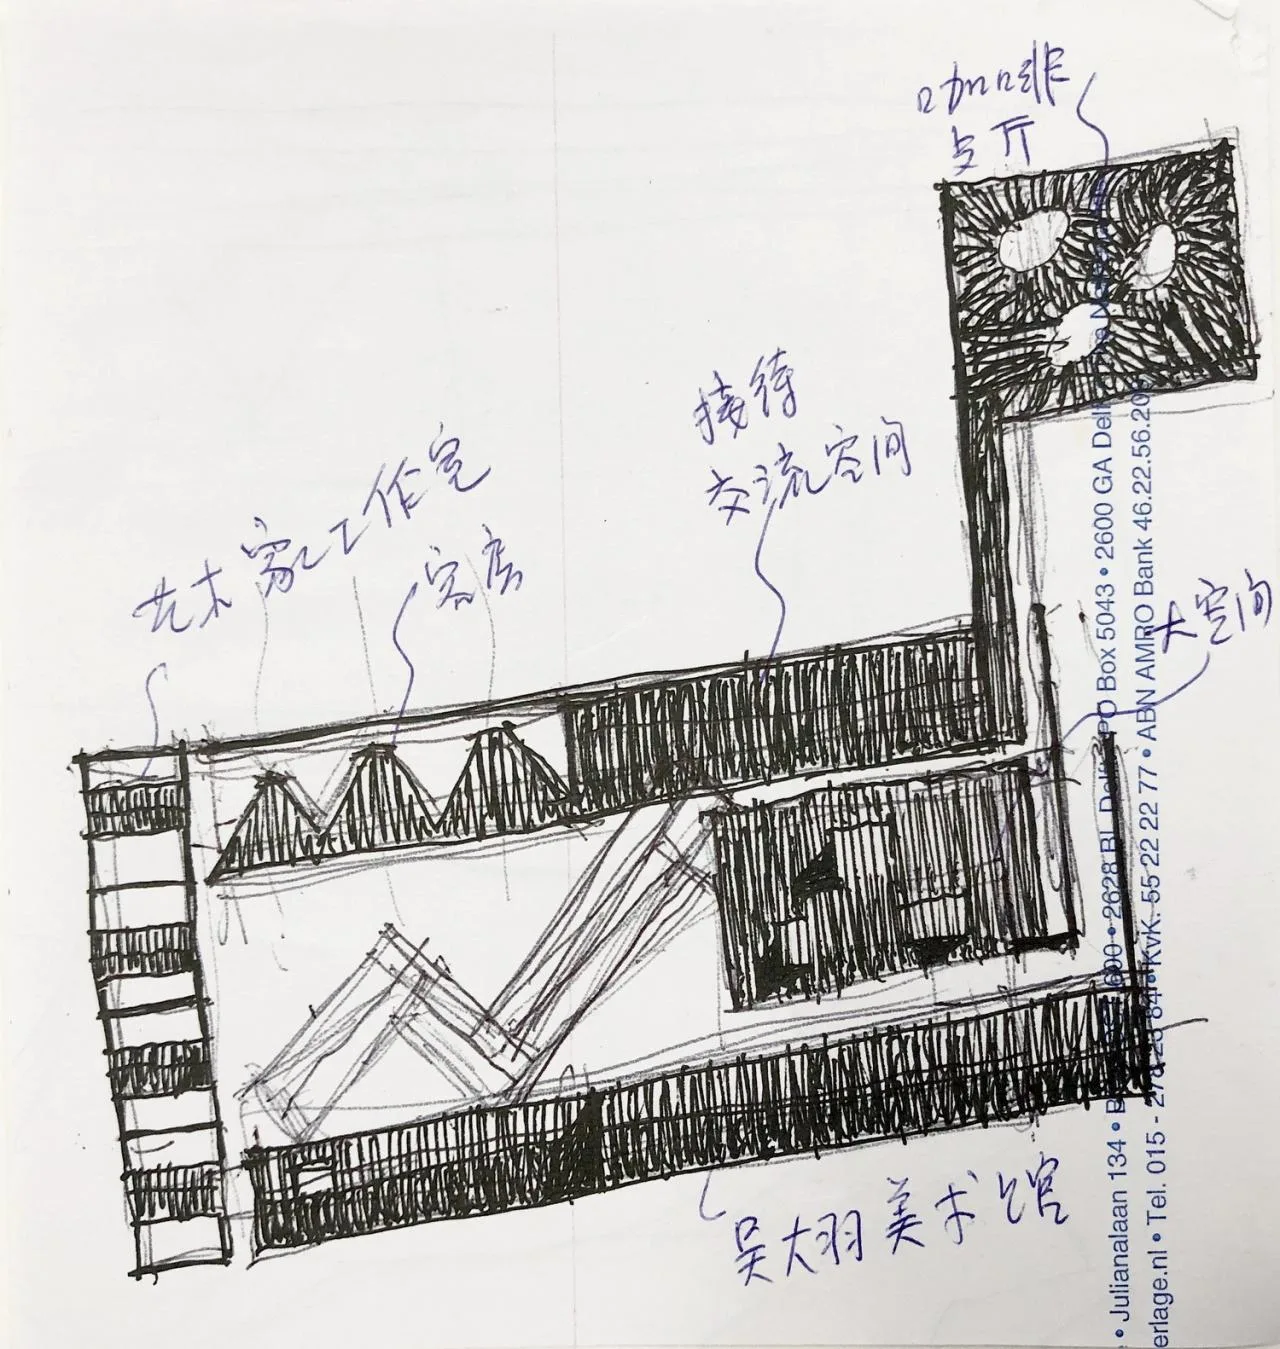 咖啡
与厅
接待
交流空间
艺术家工作室
客房
大空间
吴大羽美术馆
• Julianalaan 134 •
• 2628 Bl
PO Box 5043 • 2600 GA
erlage.nl • Tel. 015 -
KvK. 55 22 22 77 • ABN AMRO Bank 46.22.56.20